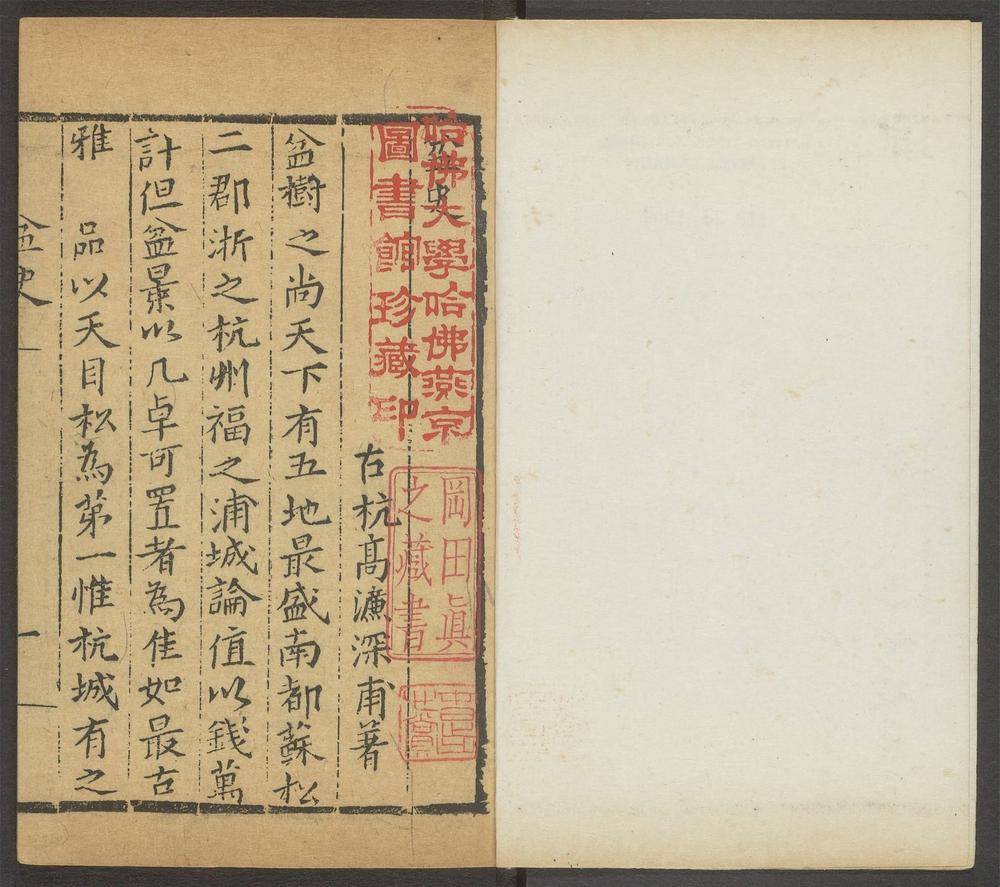 盆史
哈佛大學哈佛燕京
圖書館珍藏印
古杭高濂深甫著
岡田眞
之藏書
盆樹之尚天下有五地最盛南都蘇松
二郡浙之杭州福之浦城論值以錢萬
計但盆景以几卓可置者為佳如最古
雅　品以天目松為第一惟杭城有之
盆史
一